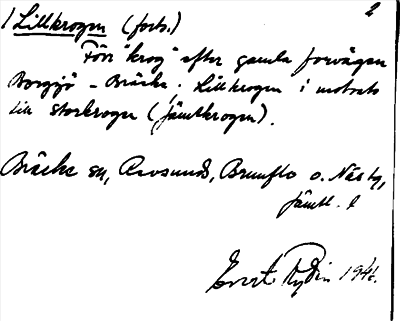 2
1 Lillkrogen (forts.)
Förr "krog" efter gamla forvägen
Borgsjö - Bräcke. Lillkrogen i motsats
till Storkrogen (Jämtkrogen).
Bräcke sn, Revsunds, Brunflo o. Näs tg,
Jämtl. l
Evert Rydin 1946.